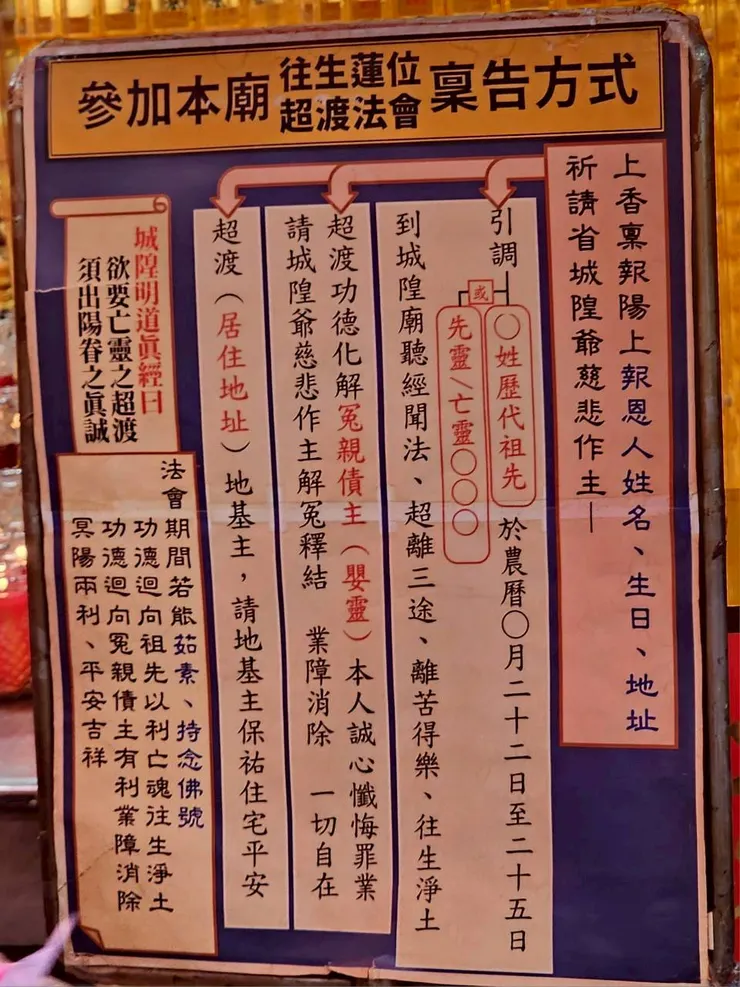 參加本廟往生蓮位超渡法會稟告方式
上香稟報陽上報恩人姓名、生日、地址
祈請省城隍爺慈悲作主—
引調
○姓歷代祖先
或
先靈\亡靈○○○
於農曆○月二十二日至二十五日
到城隍廟聽經聞法、超離三途、離苦得樂、往生淨土
超渡功德化解冤親債主（嬰靈）本人誠心懺悔罪業
請城隍爺慈悲作主解冤釋結 業障消除 一切自在
超渡（居住地址）地基主，請地基主保祐住宅平安
城隍明道真經曰
欲要亡靈之超渡
須出陽眷之真誠
法會期間若能茹素、持念佛號
功德迴向祖先以利亡魂往生淨土
功德迴向冤親債主有利業障消除
冥陽兩利、平安吉祥